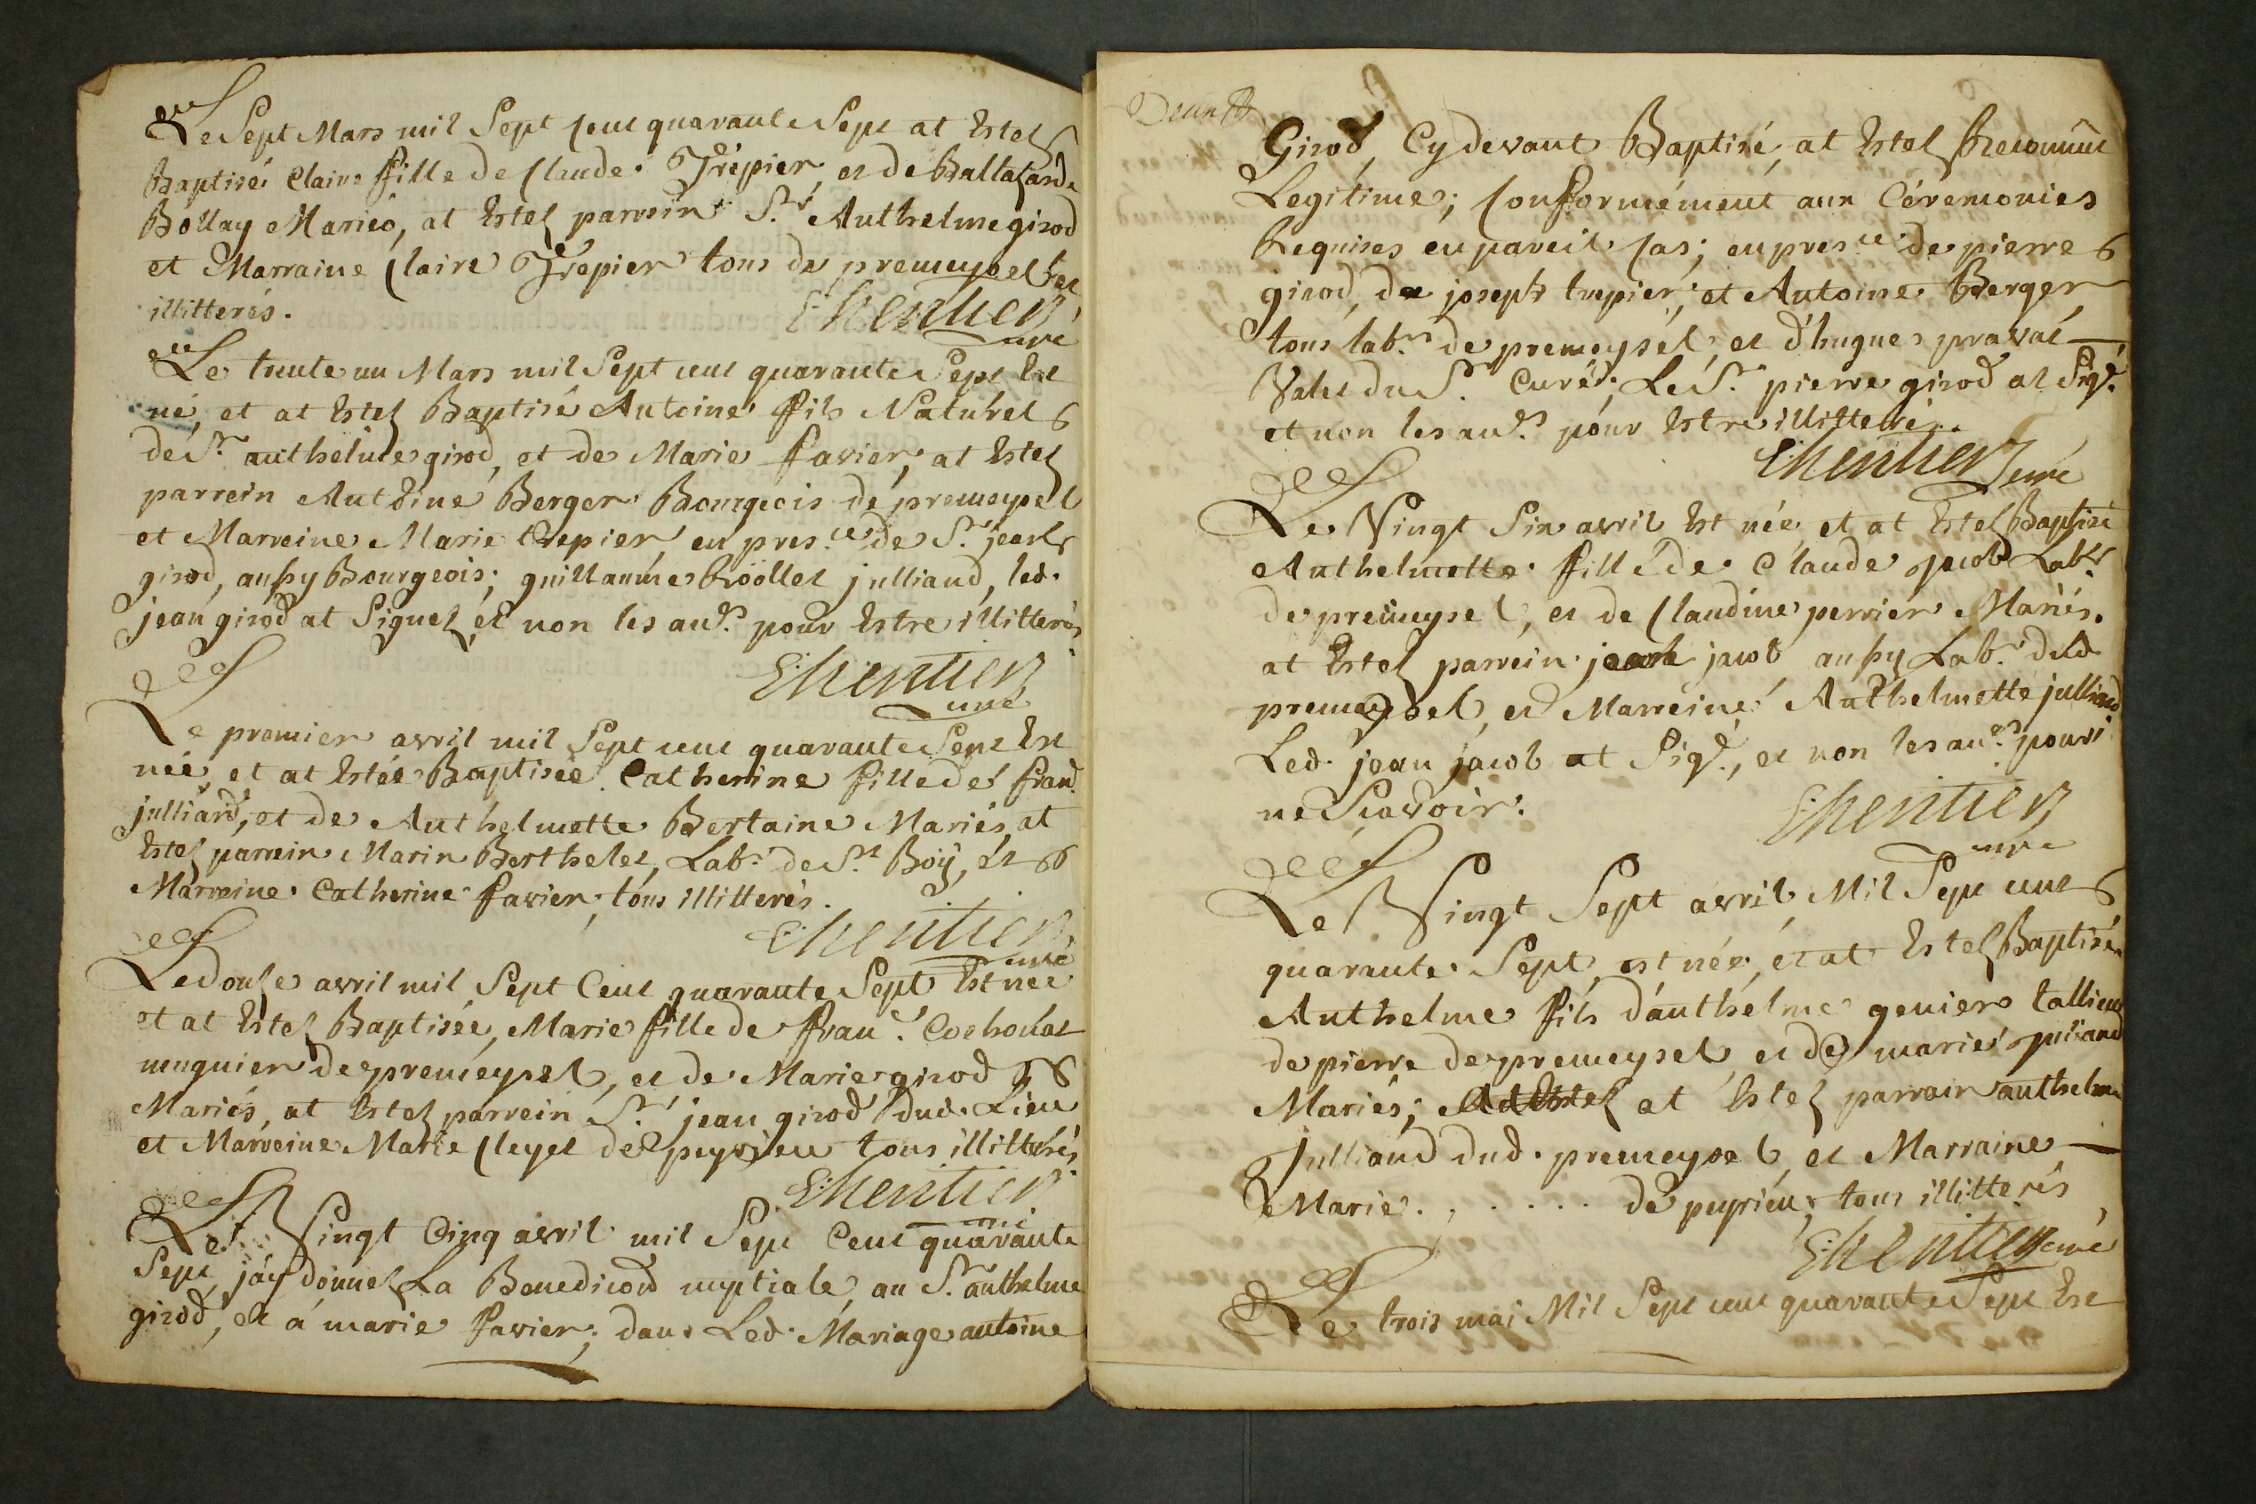 Le Sept Mars mil Sept Cent quarante Sept at Estez
Baptisé Claire fille de Claude Trépier, et de Baltazarde
Bollay Mariés, at Estez parrein Sr. Anthelme girod
et Marraine Claire Trepier tous de premeysel et
illitterés.
Chentier
curé
Le trente un Mars mil Sept cent quarante Sept Est
né, et at Estez Baptisé Antoine fils Naturel
de Sr. anthelme girod, et de Marie favier, at Estez
parrein Antoine Berger Bourgeois de premeysel
et Marreine Marie trepier, en pres.ce de Sr. jean
girod, aussy Bourgeois; guillaume Roollet julliand, led.
jean girod at Signez et non les au.s pour Estre illitterés
Chentier
curé
Le premier avril mil Sept cent quarante Sept Est
née, et at Estée Baptisée Catherine fille de fran.
julliand, et de Anthelmette Bertaine Mariés, at
Estez parrein Marin Berthelet, Lab.r de St. Boÿ, Et
Marreine Catherine favier, tous illitterés.
Chentier
curé
Le douze avril mil Sept Cent quarante Sept Est née
et at Estez Baptisée, Marie fille de fran.s Cochonat
munguier de premeysel, et de Marie girod
Mariés, at Estez parrein Sr. jean girod dud. Lieu
et Marreine Marie Cleyet de peyrieu tous illitterés
Chentier
curé
Le Vingt Cinq avril mil Sept Cent quarante
Sept, j'ay donnez La Benediction nuptiale, au Sr. anthelme
girod, et à marie favier; dans Led. Mariage antoine
Girod, Cy devant Baptisé, at Estez Reconnue
Legitime; Conformément aux Céremonies
Requises en pareil Cas; en pres.ce de pierre
girod, de joseph trepier, et Antoine Berger
tous lab.rs de premeysel, et d'hugues pravat
Valet du Sr. Curé; Le Sr. pierre girod at Sig.
et non les au.s pour Estre illitteré.
Chentier curé
Le Vingt Six avril Est née, et at Estez Baptisé
Anthelmette fille de Claude jacob Lab.r
de premeysel, et de Claudine perrier Mariés.
at Estez parrein jean jacob aussy Lab.r dud.
premeysel, et Marreine Anthelmette julliand
Led. jean jacob at Sig., et non les au.s pour
ne Scavoir.
Chentier
curé
Le Vingt Sept avril Mil Sept cent
quarante Sept, est née, et at Estez Baptisé
Anthelme fils d'anthelme genier tallieur
de pierre de premeysel, et de marie juliand
Mariés; At Estez at Estez parrain anthelme
Julliand dud. premeysel, et Marraine
Marie . . . . . . de peyrieu, tous illitterés
Chentier curé
Le trois mai Mil Sept cent quarante Sept Est